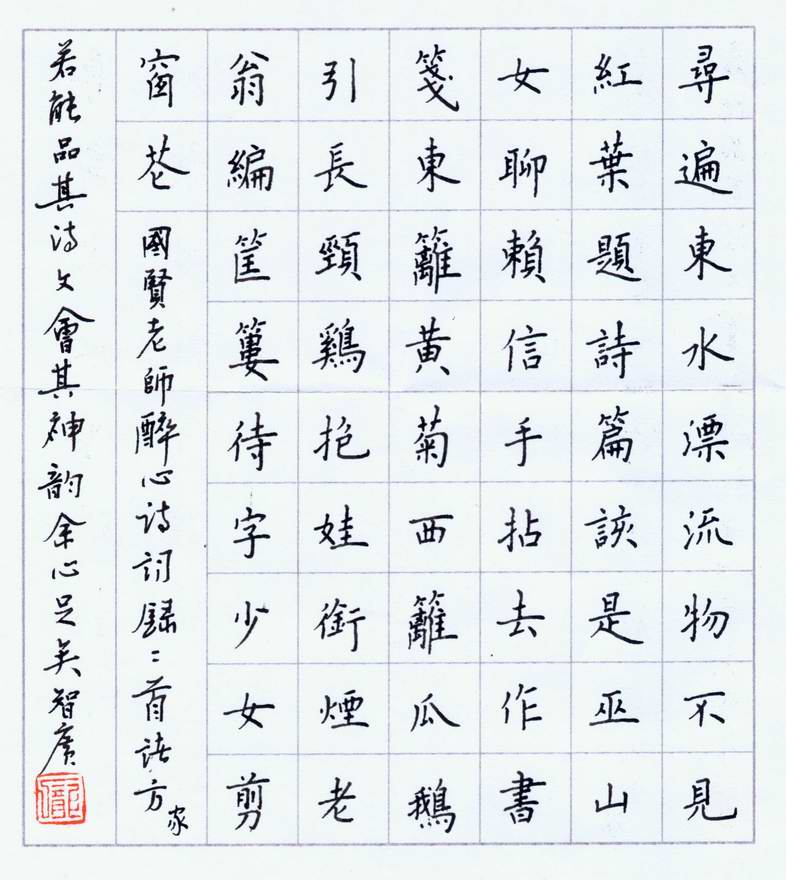 尋遍東水漂流物不見
紅葉題詩篇該是巫山
女聊賴信手拈去作書
箋東籬黃菊西籬瓜鵝
引長頸鷄抱娃銜煙老
翁編筐簍待字少女剪
窗花
國賢老師醉心诗词録二首请方家
若能品其诗文會其神韵余心足矣智廣